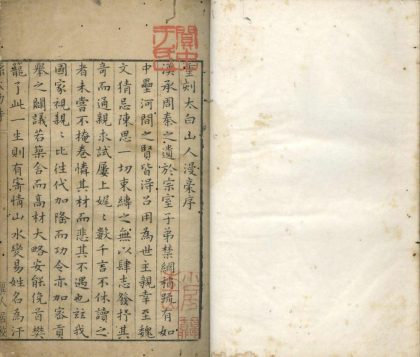 重刻太白山人漫稾序
漢承周秦之遺於宗室子弟禁網稍疏有如
中壘河間之賢皆得召用為世主親幸至魏
文猜忌陳思一切束縛之無以肆志發抒其
奇而通親求試屢上娓娓數千言不休讀之
者未嘗不掩卷憐其材而悲其不遇也我
國家視親親比往代加隆而功令亦加審貢
舉之闢議若築舍而高材大略安能俛首樊
籠了此一生則有寄情山水變易姓名為汗